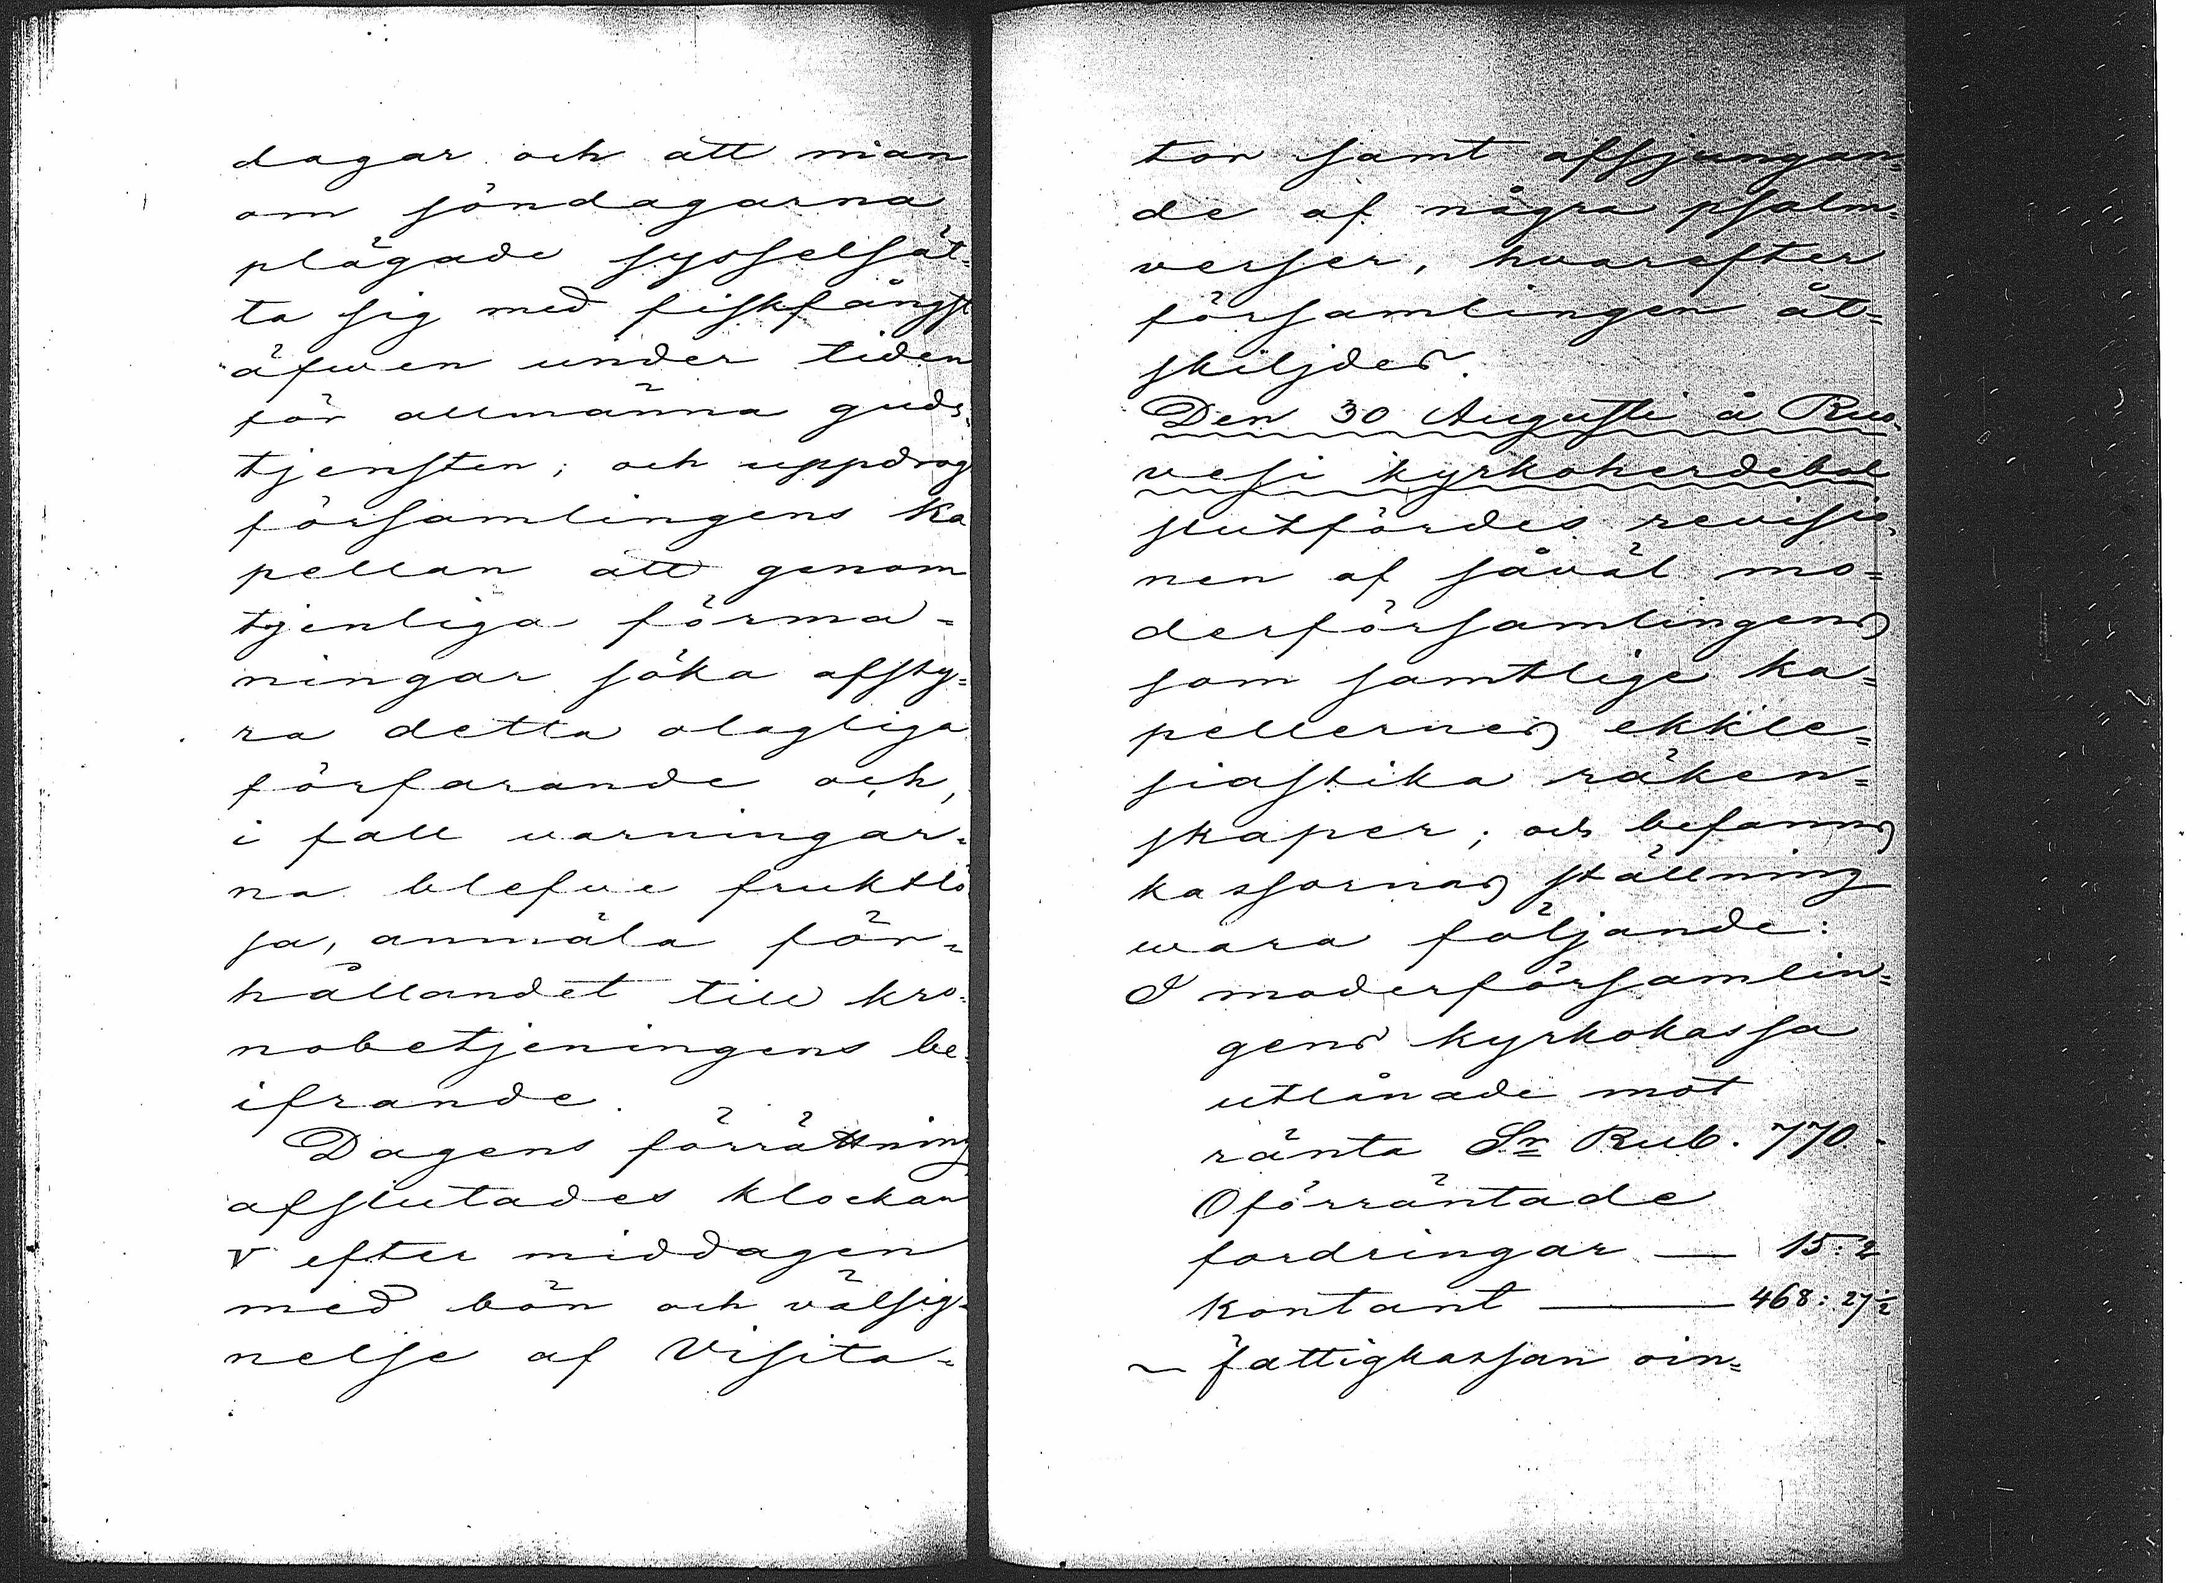 dagar och att man
om söndagarna
plägade sysselsät=
ta sig med fiskfångst
äfwen under tiden
för allmänna guds=
tjensten; och uppdrog
församlingens Ka
pellan att genom
tjenliga förma=
ningar söka afsty=
ra detta olagliga
förfarande och,
i fall varningar=
na blefwe fruktlö
sa, anmäla för=
hållandet till kro=
nobetjeningens be=
ifrande.
Dagens förrättning
afslutades klockan
V efter middagen
med bön och välsig=
nelse af Visita=
ton samt afsjungan=
de af några psalm=
verser, hvarefter
församlingen åt=
skiljdes.
Den 30 Augusti å Ruo=
vesi kyrkoherdebol
slutfördes revisio=
nen af såväl mo=
derförsamlingens
som samtlige ka=
pellernes ekkle=
siastika räken=
skaper; och befanns
kassornas ställning
wara följande:
I moderförsamlin=
gens kyrkokassa
utlånade mot
ränta Sr Rub. 770.
Oförräntade
fordringar — 15: 2
Kontant — 468: 27½
~ fattigkassan oin=